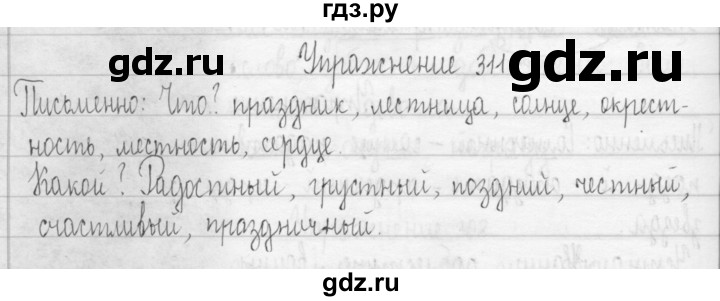 гдз.ру
gdz.ru gdz.ru
Упражнение 311
Письменно: Что? праздник, лестница, солнце, окрест-
ность, местность, сердце.
Какой? Радостный, грустный, поздний, честный,
счастливый, праздничный.
gdz.ru gdz.ru
gdz.ru